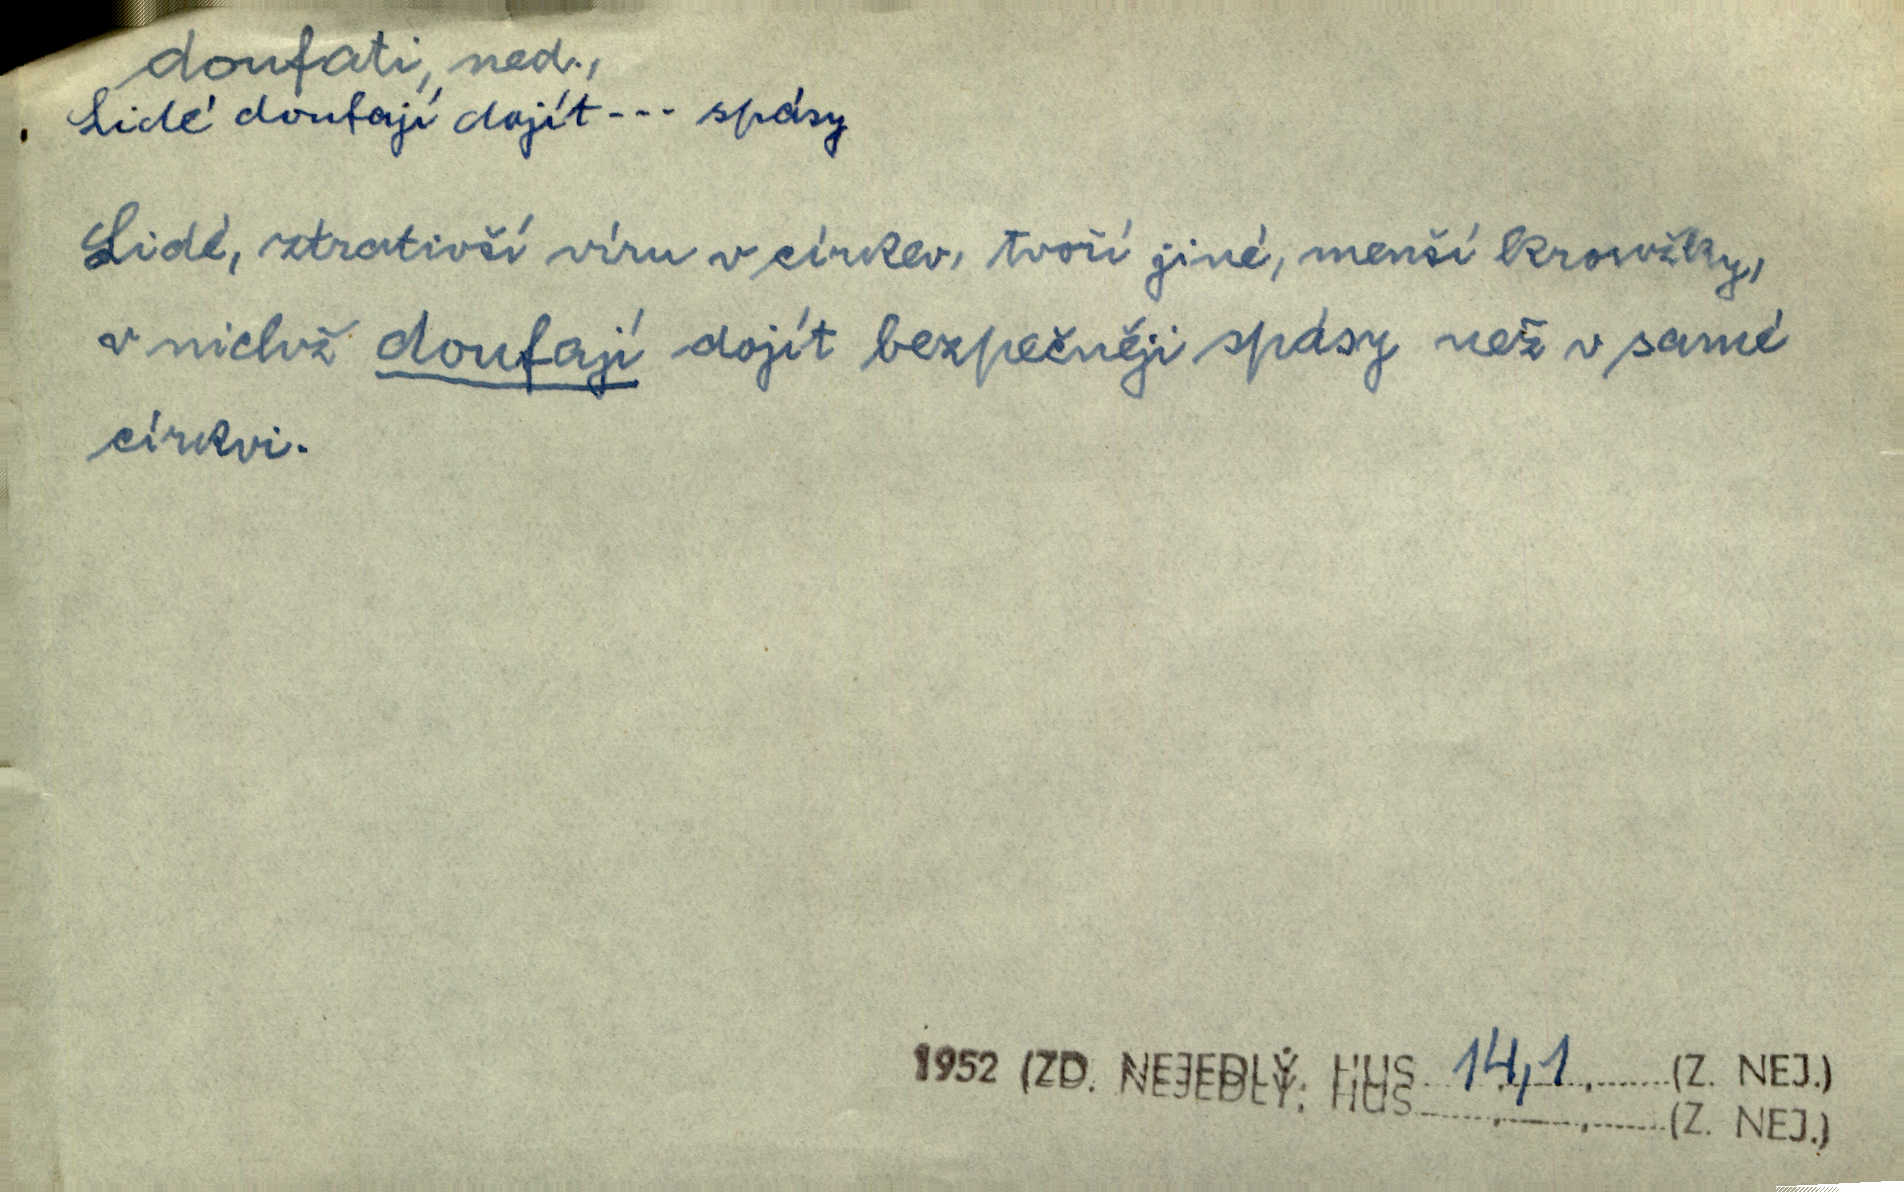 doufati, ned.,
Lidé doufají dojít --- spásy
Lidé, ztrativší víru v církev, tvoří jiné, menší kroužky,
v nichž doufají dojít bezpečněji spásy než v samé
církvi.
1952 (ZD. NEJEDLÝ, HUS 14,1 (Z. NEJ.)
(Z. NEJ.)